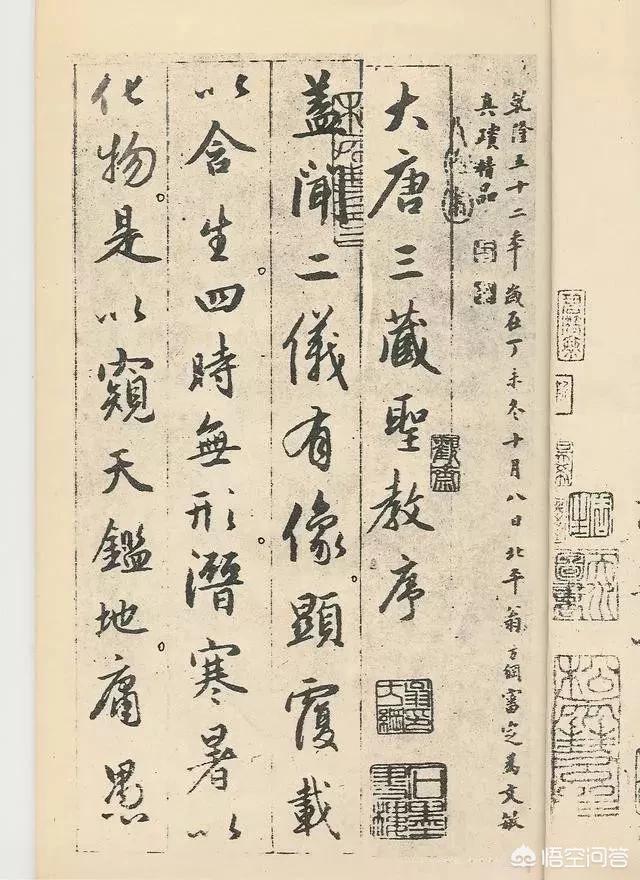 乾隆五十二年歲在丁未冬十月八日北平翁方綱審定為文敏
真蹟精品
大唐三藏聖教序
蓋聞二儀有像。顯覆載
以含生。四時無形。潛寒暑以
化物。是以窺天鑑地。庸愚
悟空问答